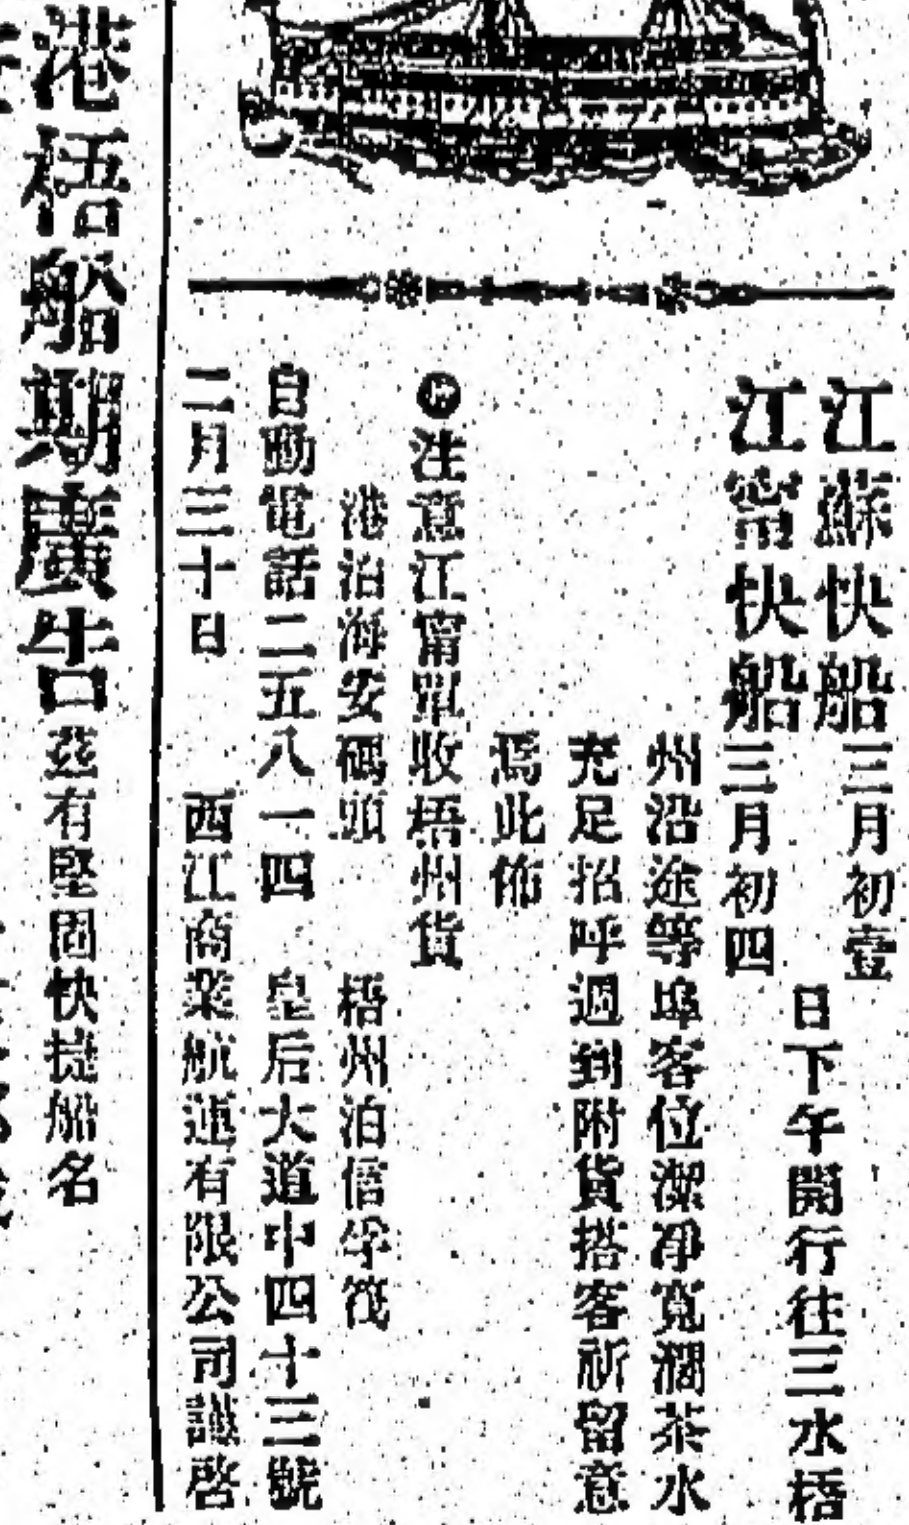 江蘇快船三月初壹
江甯快船三月初四
日下午開行往三水梧
州沿途等埠客位潔淨寬濶茶水
充足招呼週到附貨搭客祈留意
焉此佈
注意江甯單收梧州貨
港泊海安碼頭 梧州泊信孚筏
自動電話二五八一四 皇后大道中四十三號
二月三十日 西江商業航運有限公司謹啓
港梧船期廣告茲有堅固快捷船名